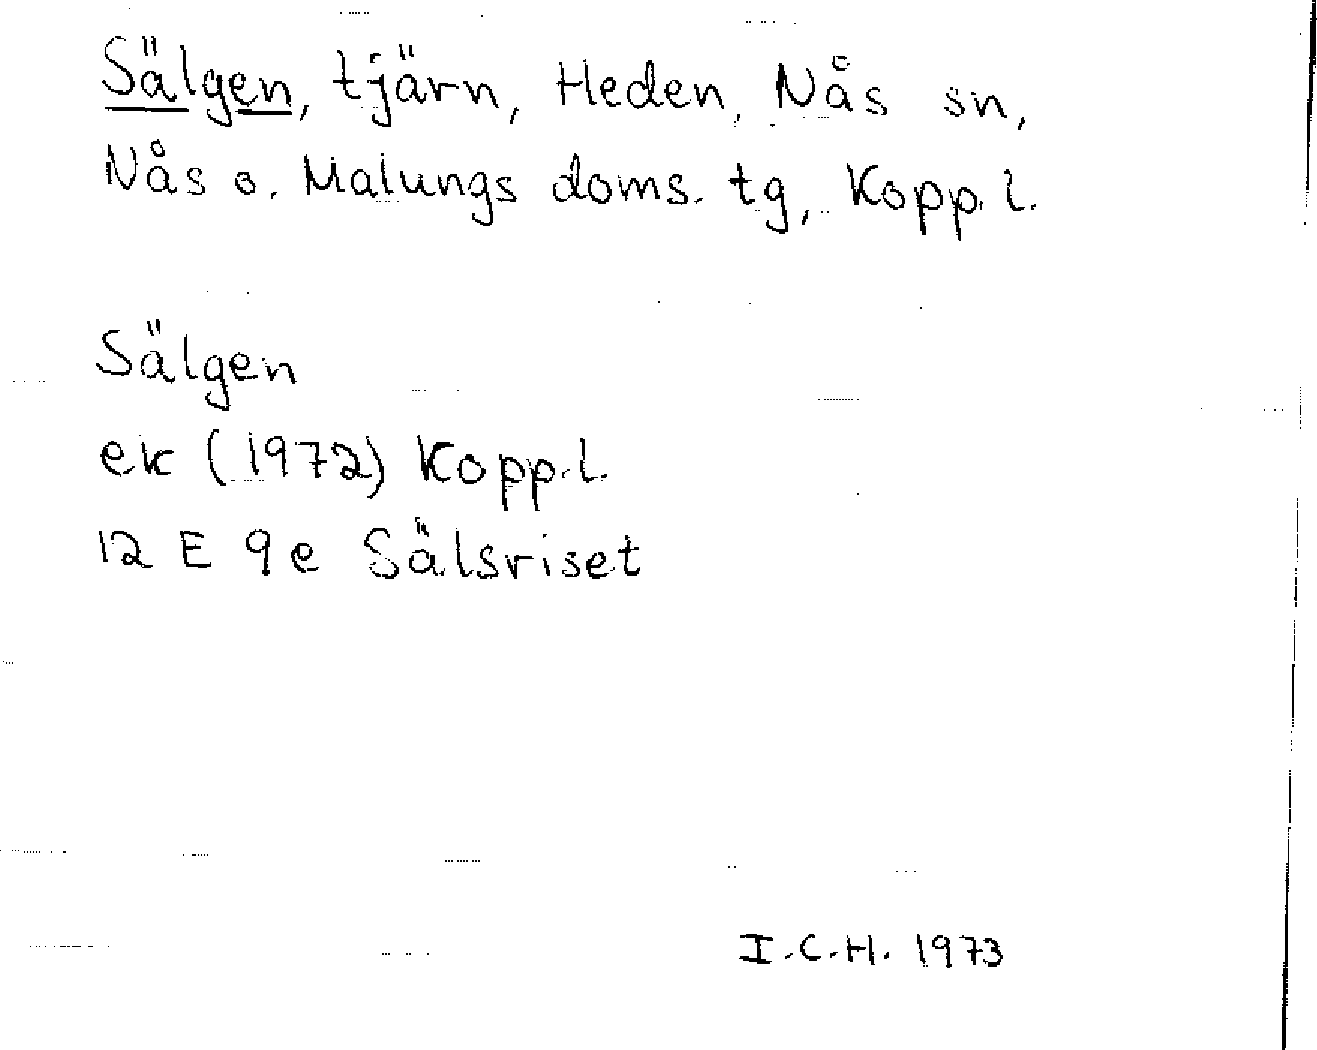 Sälgen, tjärn, Heden, Nås sn,
Nås o. Malungs doms. tg, Kopp. l.
Sälgen
ek (1972) Kopp. l.
12 E 9e Sälsriset
I.C.H. 1973